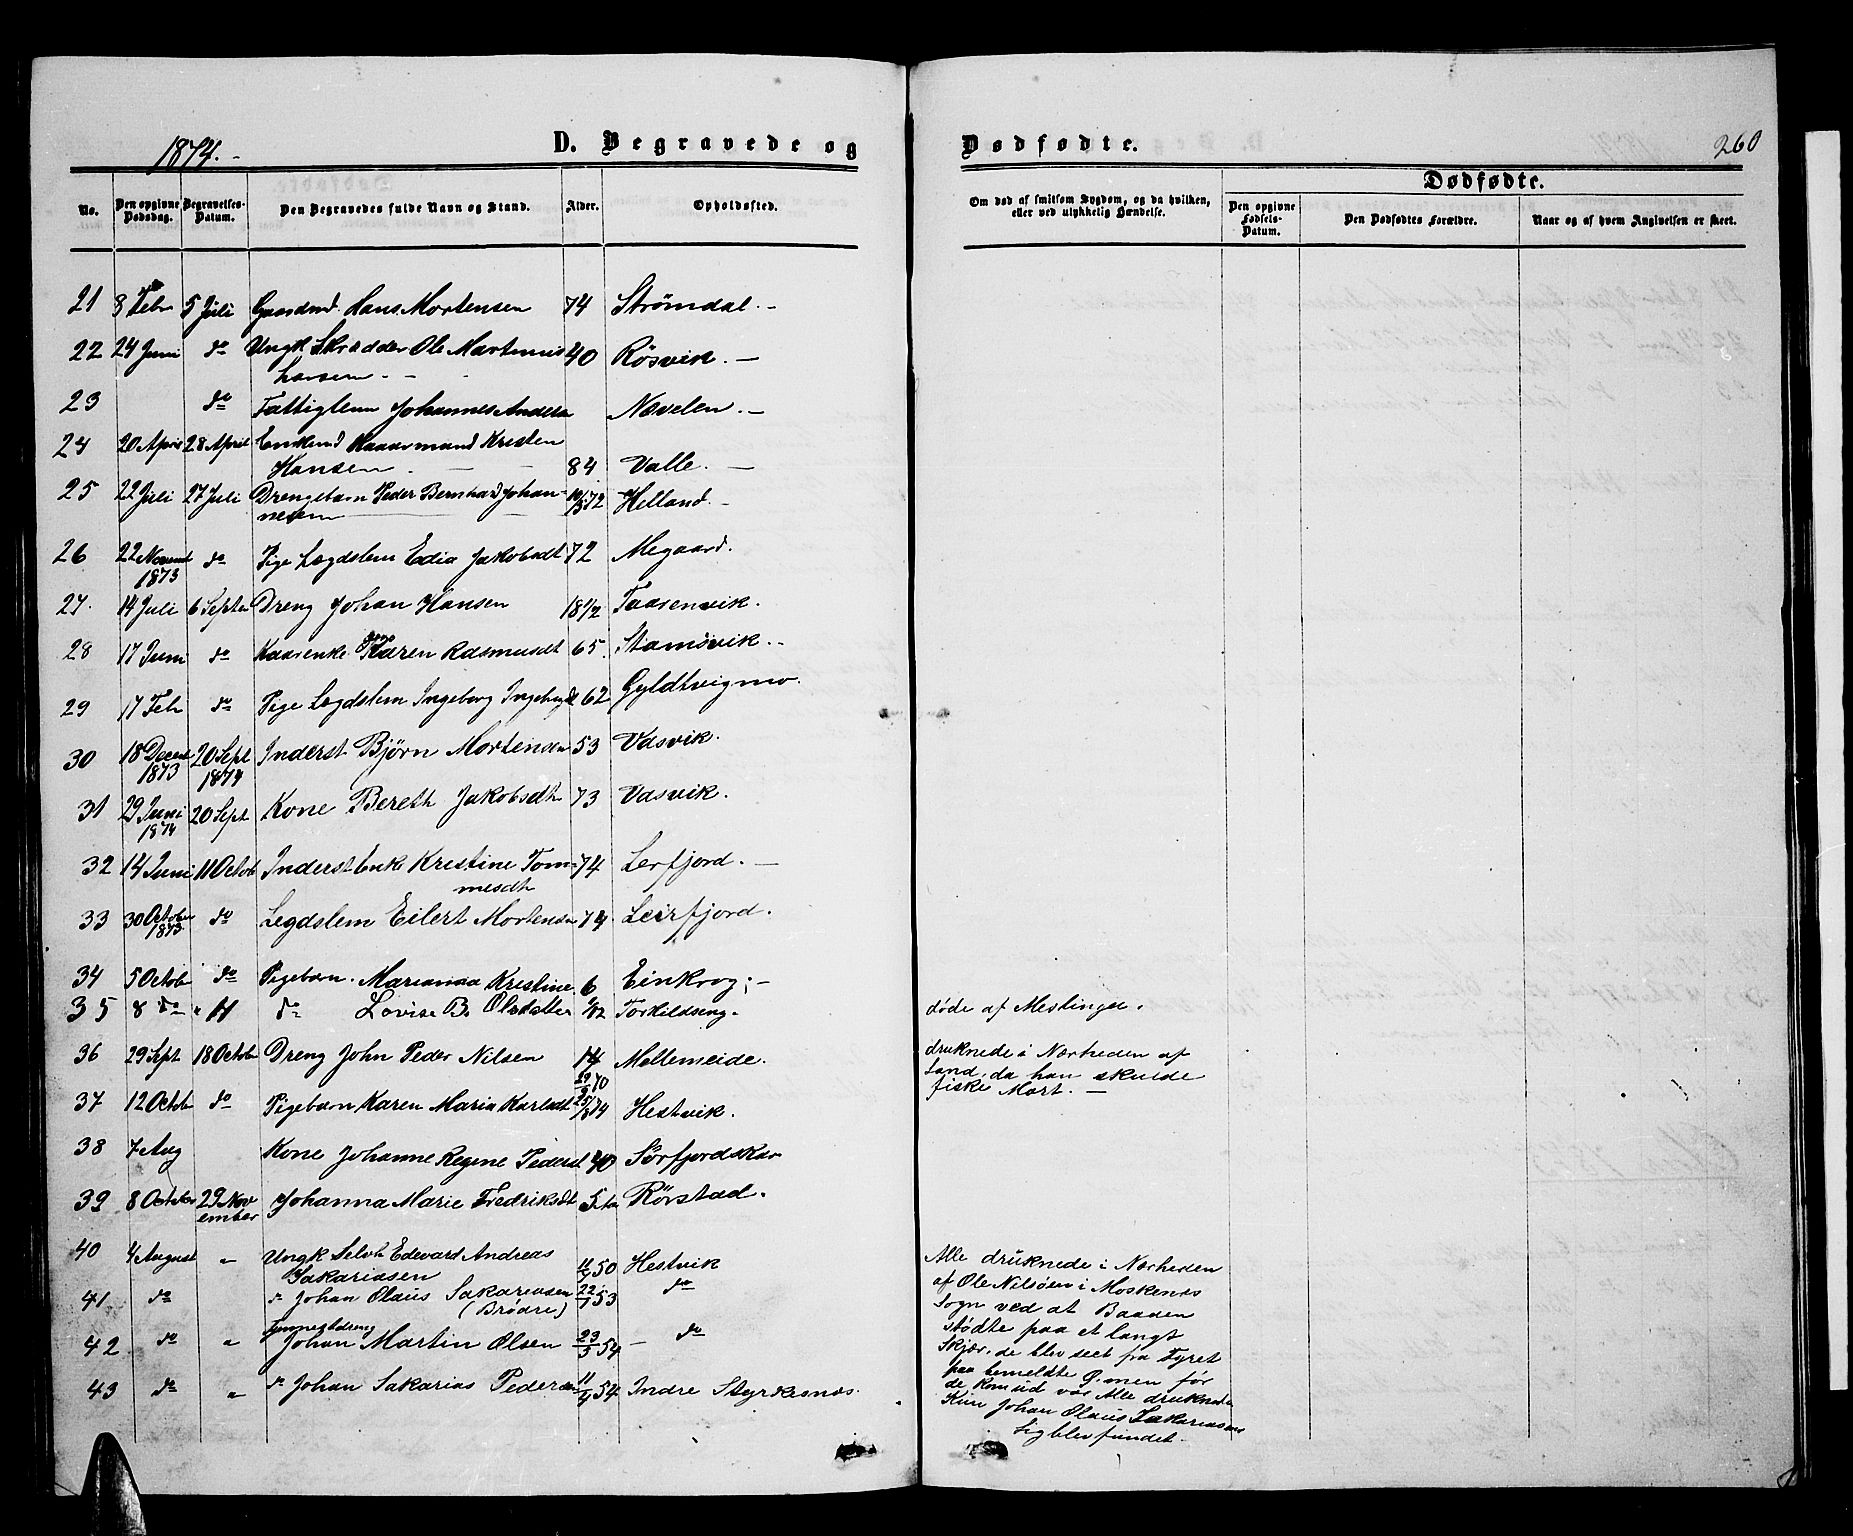 1874.-
D. Begravede og
Dødfødte.
260
No.
Den opgivne Dødsdag.
Begravelses-Datum.
Den Begravedes fulde Navn og Stand.
Alder.
Opholdssted.
Om død af smitsom Sygdom, og da hvilken, eller ved ulykkelig Hændelse.
Dødfødte.
Den opgivne Fødsels-Datum.
Den Dødfødtes Forældre.
Naar og af hvem Angivelsen er skeet.
21 8 Febr 5 Juli Gaardmd. Hans Mortensen 74 Strømdal.-
22 24 Juni do Ungk Skrædder Ole Martinus 40 Røsvik.-
Larsen.-
23 do Fattiglem Johannes Anders Nævelen.-
24 20 April 28 April Enkemd Kaarmand Kristen
Hansen.- 84 Valle.-
25 22 Juli 27 Juli Drengebarn Peder Bernhard Johan- 10/3 72 Helland.-
nesen
26 22 Novemb do Pige Lægdslem Edia Jakobsdt 72 Megaard.
1873
27. 14 Juli 6 Septer Dreng Johan Hansen 18 1/2 Taarenvik.
28 17 Juni do Kaarenke Karen Rasmusdt 65. Stamsvik.-
29 17 Feb do Pige Lægdslem Ingeborg 62 Gyldtvigmo.
30 18 Decemb 20 Sept Inderst Bjørn Mortensen 53 Vasvik.
1873 1874
31 29 Juni 20 Sept Kone Bereth Jakobsdt 73 Vasvik.
1874
32 14 Juni 11 Octob Inderst Enke Kristine Tom- 74 Lerfjord.-
mesdt
33 30 October do Legdslem Eilert Mortensen 74 Leirfjord.
1873
34 5 Octob do Pigebarn. Marianna Kristine 6 Einkrog;-
35 8 do " 11 do Lovise B. Olsdatter 1/12 Torkildseng. døde af Mestinger.
36 29 Sept 18 Octob Dreng John Peder Nilsen 14 Mellemeide. druknede i Nærheden af
29/9 70 Land, da han skulde
fiske Mort.-
37 12 Octob do Pigebarn Karen Maria Karlsdt 25/8 74 Hestvik.
38 7 Aug Kone Johanne Regine Pedersd 40 Sørfjordskar
39 8 October 29 Nov Johanna Marie Fredriksdt Rørstad.
ember
40 4 August " Ungk Selvh Edevard Andreas Alle druknede i Nærheden
Sakariasen 11/7 50 Hestvik af Ole Nilsøen i Moskenes
41 do do Johan Olaus Sakariasen 22/7 53 do Sogn ved at Baaden
(Brødre)
42 do " Tjenestdreng stødte paa et langt
Johan Martin Olsen 23/5 54 - do Skjær, de blev seet fra Fyret
43 do " do Johan Sakarias Pedersen 11/4 54 Indre Styrkesnæs. paa bemeldte Ø, men før
de kom ud var Alle druknede
Kun Johan Olaus Sakariasens
Lig blev fundet.-